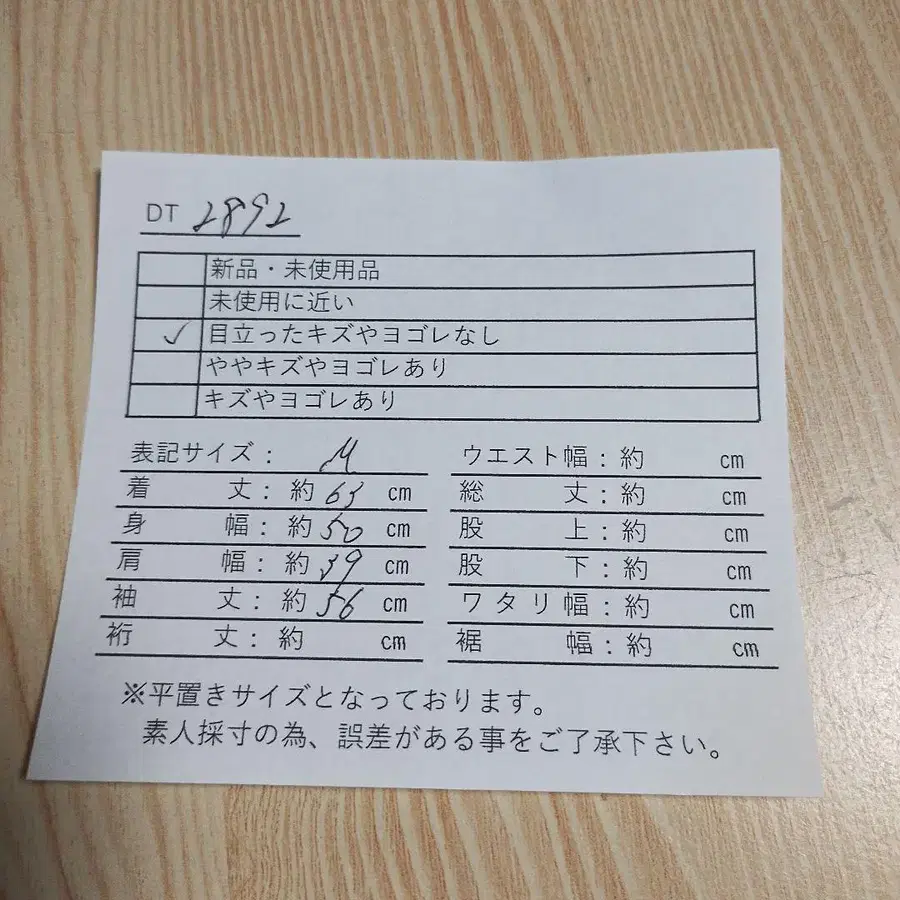 DT 2892
新品・未使用品
未使用に近い
✓ 目立ったキズやヨゴレなし
ややキズやヨゴレあり
キズやヨゴレあり
表記サイズ: M
着丈:約 cm
身幅:約50cm
肩幅:約39cm
袖丈:約56cm
裄丈:約 cm
ウエスト幅:約 cm
総丈:約 cm
股上:約 cm
股下:約 cm
ワタリ幅:約 cm
裾幅:約 cm
※平置きサイズとなっております。
素人採寸の為、誤差がある事をご了承下さい。